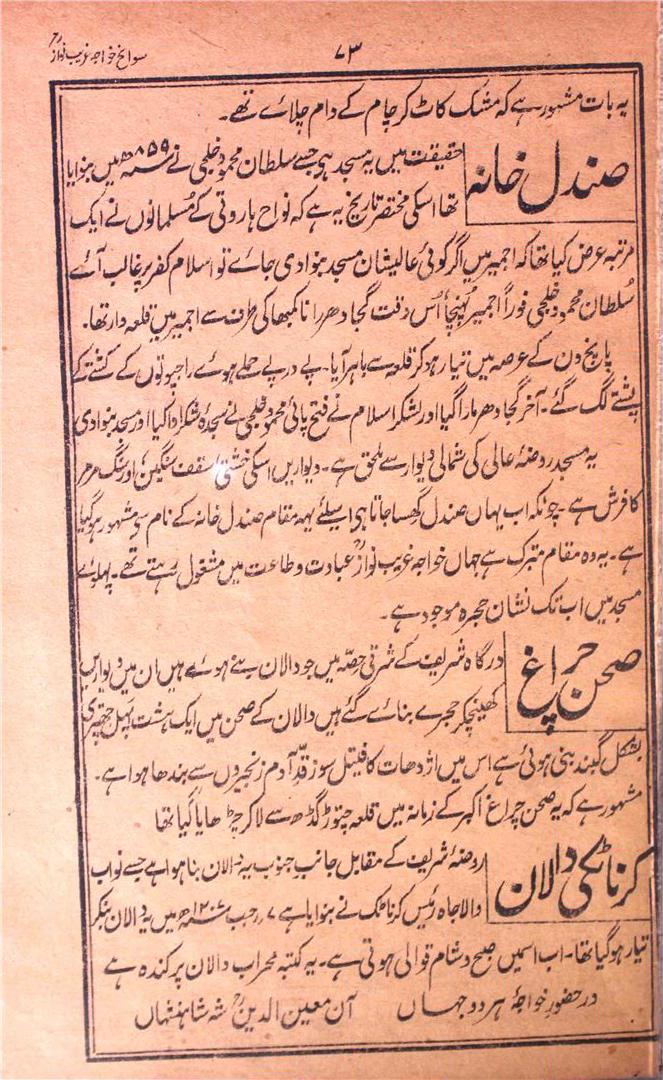 سوانح خواجہ غریب نوازؒ
۷۳
یہ بات مشہور ہے کہ مشک کاٹ کر چام کے دام چلائے تھے۔
صندل خانہ
حقیقت میں یہ مسجد ہی جسے سلطان محمود خلجی نے ۸۵۹ھ میں بنوایا
تھا اسکی مختصر تاریخ یہ ہے کہ نواح ہاروتی کے مسلمانوں نے ایک
مرتبہ عرض کیا تھا کہ اجمیر میں اگر کوئی عالیشان مسجد بنوا دی جائے تو اسلام کفر پر غالب آئے
سُلطان محمود خلجی فوراً اجمیر پُہنچا اُس وقت گجادھر رانا کمبھا کی طرف سے اجمیر میں قلعہ دار تھا۔
پانچ دن کے عرصہ میں تیار ہو کر قلعہ سے باہر آیا۔ پے در پے حملے ہوئے راجپوتوں کے کشتے کے
پشتے لگ گئے۔ آخر گجادھر مارا گیا اور لشکر اسلام نے فتح پائی محمود خلجی نے سجدۂ شکر ادا کیا اور مسجد بنوادی
یہ مسجد روضہ عالی کی شمالی دیوار سے ملحق ہے۔ دیواریں اسکی خشتی سقف سنگین اور سنگ مرمر
کا فرش ہے۔ چونکہ اب یہاں صندل گھسا جاتا ہی اسلئے یہہ مقام صندل خانہ کے نام سی مشہور ہوگیا
ہے۔ یہ وہ مقام متبرک ہے جہاں خواجہ غریب نوازؒ عبادت و طاعت میں مشغول رہتے تھے۔ پہلوئے
مسجد میں اب تک نشان حجرہ موجود ہے۔
صحن چراغ
درگاہ شریف کے شرقی حصّہ میں جو دالان بنے ہوئے ہیں ان میں دیواریں
کھینچکر حجرے بنائے گئے ہیں دالان کے صحن میں ایک ہشت پہل چھتری
بشکل گنبد بنی ہوئی ہے اس میں اژدھات کا فیتل سوز قدِّ آدم زنجیروں سے بندھا ہوا ہے۔
مشہور ہے کہ یہ صحن چراغ اکبر کے زمانہ میں قلعہ چتوڑ گڈھ سے لاکر چڑھایا گیا تھا
کرناٹکی دالان
روضۂ شریف کے مقابل جانب جنوب یہ دالان بنا ہوا ہے جسے نواب
والاجاہ رئیس کرناٹک نے بنوایا ہے ۷ رجب ۱۲۰۷ھ میں یہ دالان بنکر
تیار ہوگیا تھا۔ اب اسمیں صبح و شام قوالی ہوتی ہے۔ یہ کتبہ محراب دالان پر کندہ ہے
در حضورِ خواجۂ ہر دو جہاں آن معین الدینؒ شہ شاہنشہاں